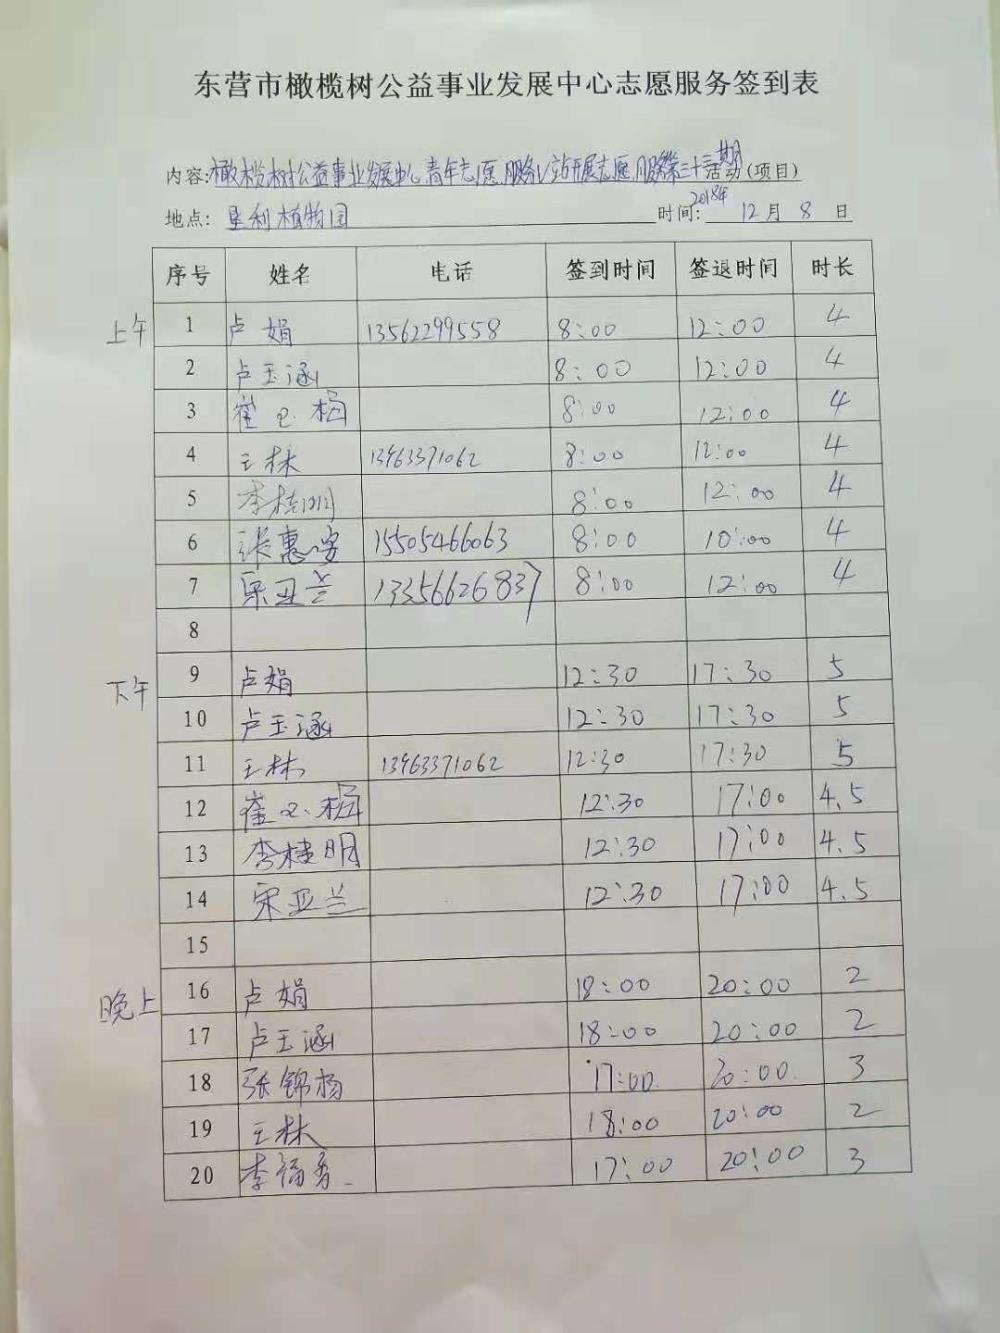 东营市橄榄树公益事业发展中心志愿服务签到表
内容:橄榄树公益事业发展中心青年志愿服务V站开展志愿服务第三十三期活动(项目)
地点: 垦利植物园 时间: 2018年 12月 8 日
序号 姓名 电话 签到时间 签退时间 时长
上午 1 卢娟 13562299558 8:00 12:00 4
2 卢玉涵 8:00 12:00 4
3 崔 梅 8:00 12:00 4
4 王林 13963371062 8:00 12:00 4
5 李桂明 8:00 12:00 4
6 张惠安 15505466063 8:00 10:00 4
7 宋亚兰 13356626837 8:00 12:00 4
8
下午 9 卢娟 12:30 17:30 5
10 卢玉涵 12:30 17:30 5
11 王林 13963371062 12:30 17:30 5
12 崔 梅 12:30 17:00 4.5
13 李桂明 12:30 17:00 4.5
14 宋亚兰 12:30 17:00 4.5
15
晚上 16 卢娟 18:00 20:00 2
17 卢玉涵 18:00 20:00 2
18 张锦杨 17:00 20:00 3
19 王林 18:00 20:00 2
20 李福香 17:00 20:00 3